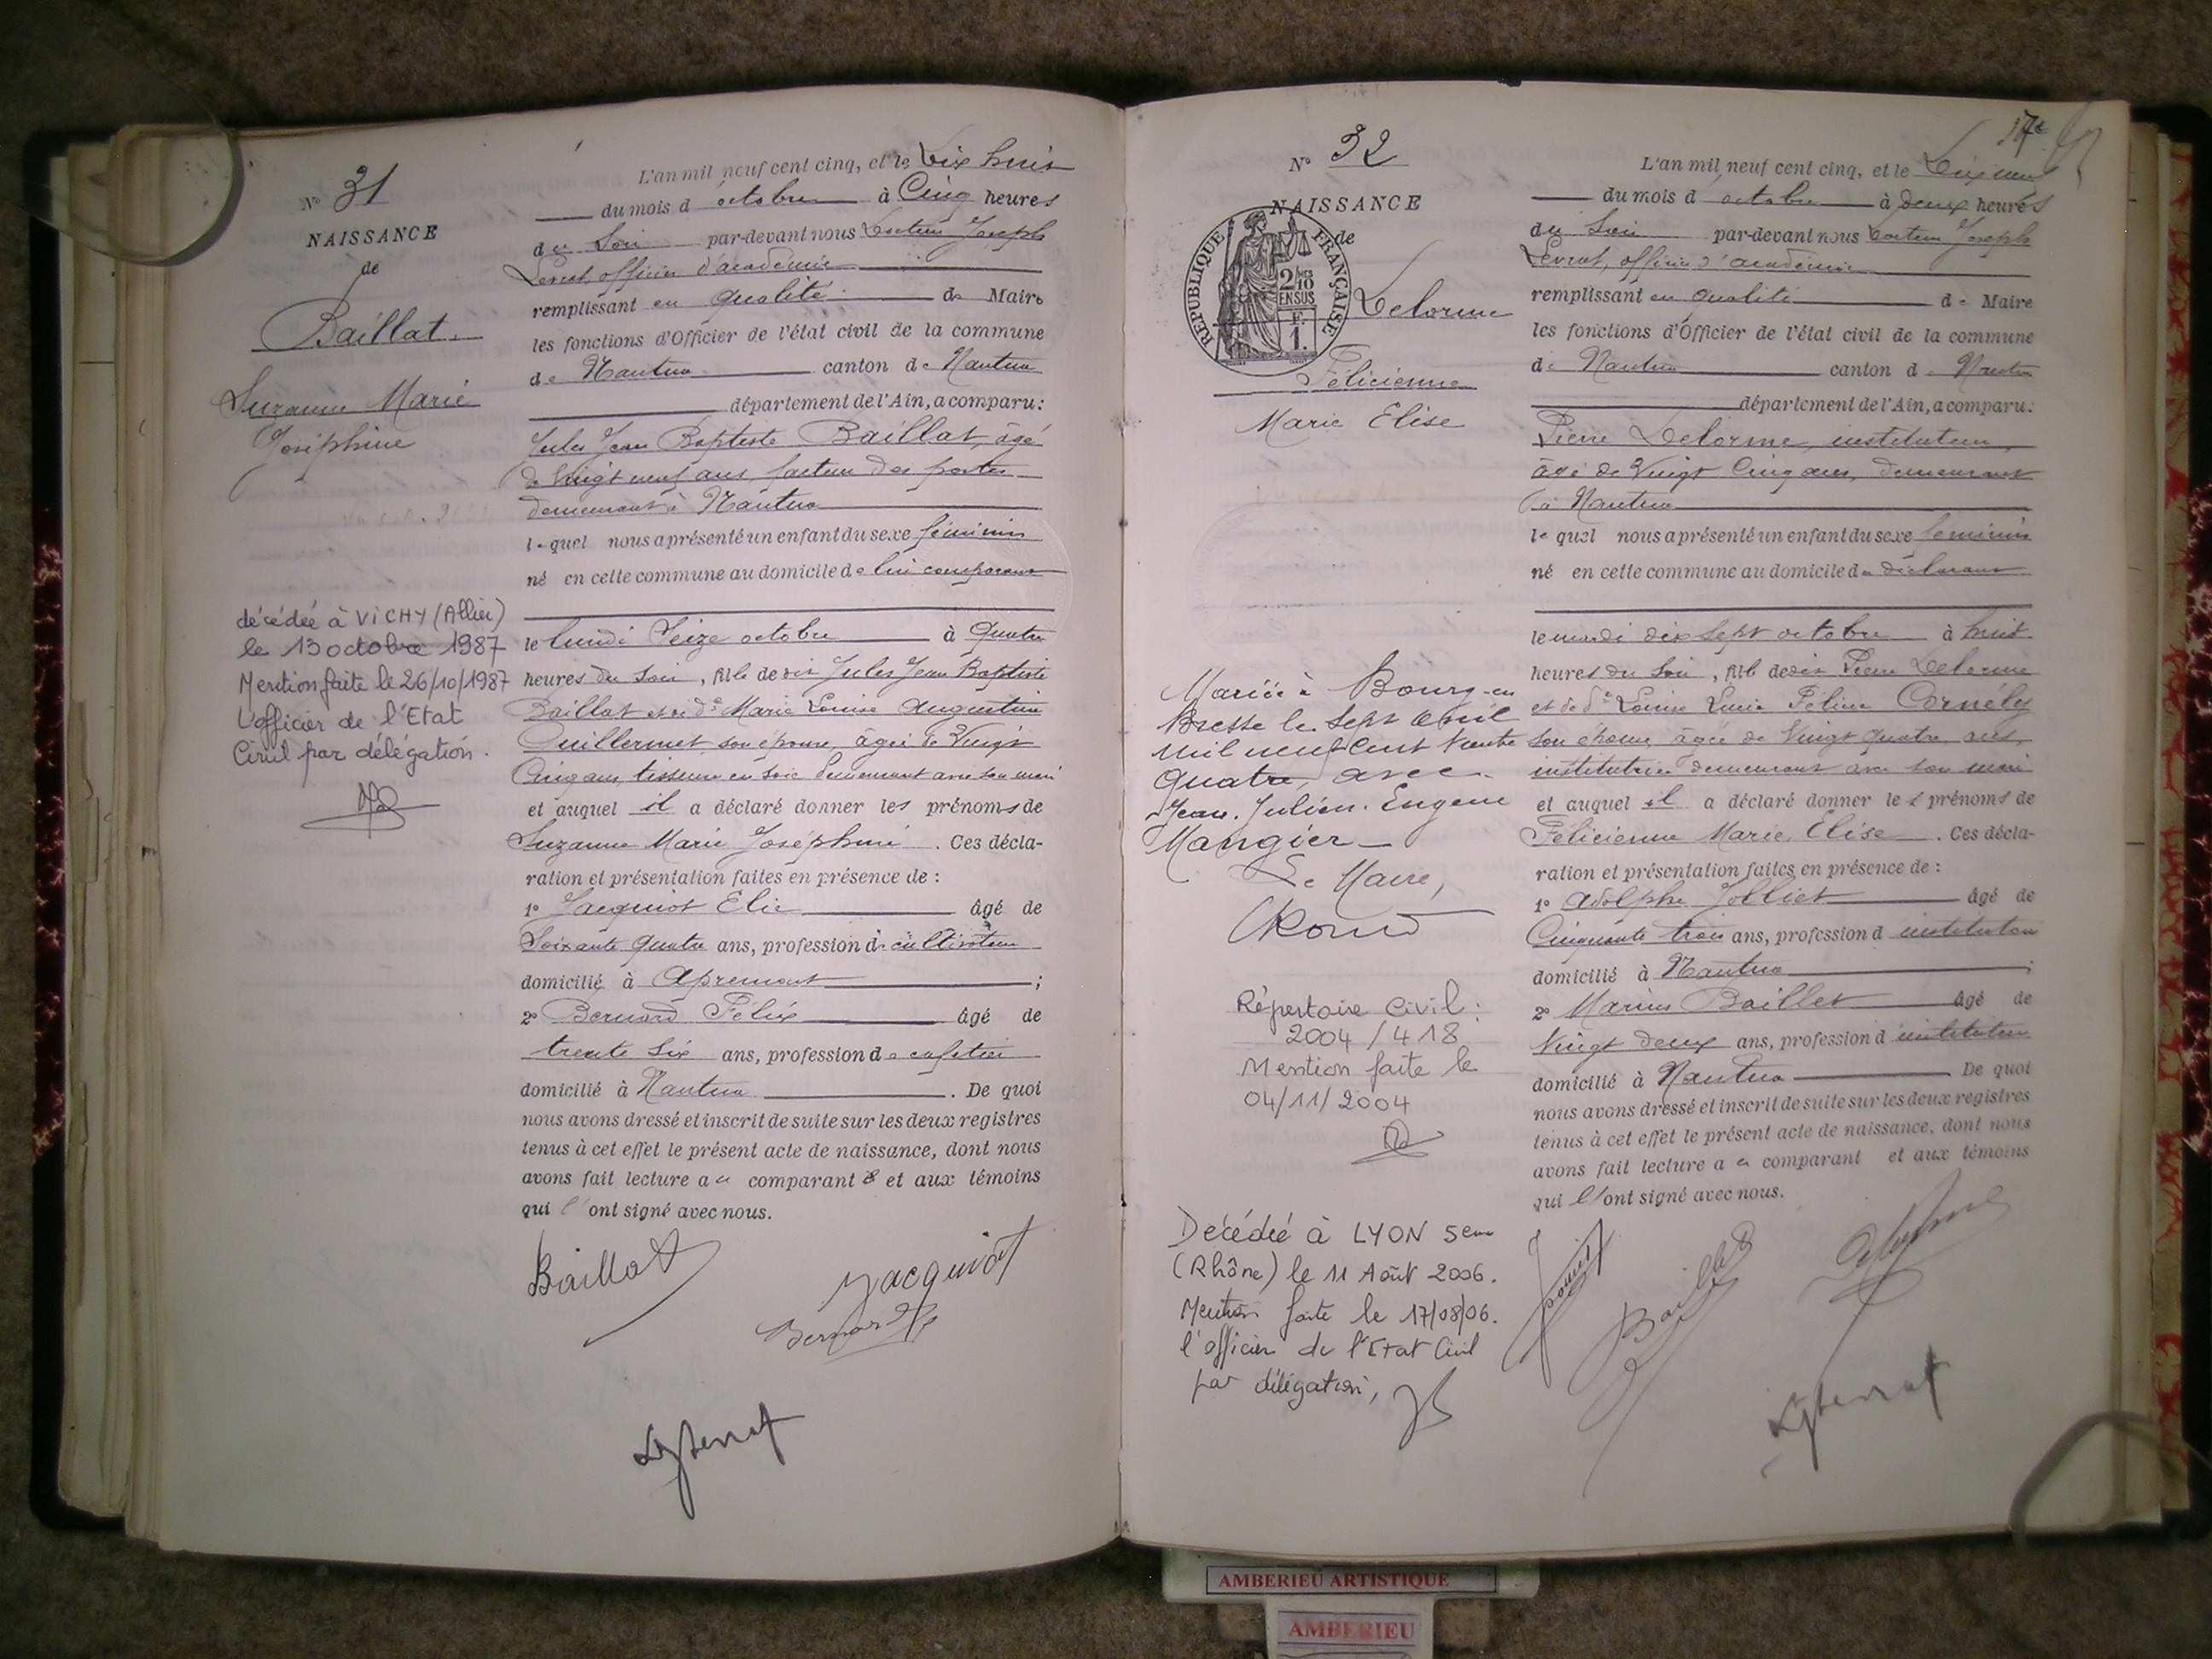 N° 31
NAISSANCE
de
Baillat
Suzanne Marie
Joséphine
décédée à VICHY (Allier)
le 13 octobre 1987
Mention faite le 26/10/1987
L'officier de l'Etat
Civil par délégation.
L'an mil neuf cent cinq, et le Dix huit
du mois d octobre à Cinq heures
du Soir par-devant nous Docteur Joseph
Levrat, officier d'académie
remplissant en qualité de Maire
les fonctions d'Officier de l'état civil de la commune
de Nantua canton de Nantua
département de l'Ain, a comparu:
Jules Jean Baptiste Baillat, âgé
de Vingt neuf ans, facteur des postes
demeurant à Nantua
lequel nous a présenté un enfant du sexe féminin
né en cette commune au domicile de lui comparant
le lundi Seize octobre à Quatre
heures du Soir, fille de Jules Jean Baptiste
Baillat et de De Marie Louise Augustine
Guillermet son épouse, âgée de Vingt
Cinq ans, tisseuse en soie demeurant avec son mari
et auquel il a déclaré donner les prénoms de
Suzanne Marie Joséphine. Ces décla-
ration et présentation faites en présence de:
1° Jacquiot Elie âgé de
Soixante quatre ans, profession de cultivateur
domicilié à Apremont;
2° Bernard Félix âgé de
trente Six ans, profession de cafetier
domicilié à Nantua. De quoi
nous avons dressé et inscrit de suite sur les deux registres
tenus à cet effet le présent acte de naissance, dont nous
avons fait lecture au comparant et aux témoins
qui l'ont signé avec nous.
Baillat
Jacquiot
Bernard
17e
N° 32
NAISSANCE
de
REPUBLIQUE FRANÇAISE
2/10
EN SUS
F.
1.
Delorme
Félicienne
Marie Elise
Mariée à Bourg-en
Bresse le Sept Avril
mil neuf cent trente
quatre, avec
Jean. Julien. Eugene
Mangier
Le Maire,
Répertoire Civil:
2004/418
Mention faite le
04/11/2004
Décédée à LYON 5eme
(Rhône) le 11 Août 2006.
Mention faite le 17/08/06.
l'officier de l'Etat Civil
par délégation,
L'an mil neuf cent cinq, et le Dix neuf
du mois d octobre à deux heures
du Soir par-devant nous Docteur Joseph
Levrat, officier d'académie
remplissant en qualité de Maire
les fonctions d'Officier de l'état civil de la commune
de Nantua canton de Nantua
département de l'Ain, a comparu:
Pierre Delorme, instituteur,
âgé de Vingt Cinq ans, demeurant
à Nantua
lequel nous a présenté un enfant du sexe feminin
né en cette commune au domicile du déclarant
le mardi dix Sept octobre à huit
heures du Soir, fille de Pierre Delorme
et de De Louise Lucie Féline Cornély
son épouse, âgée de Vingt quatre ans,
institutrice demeurant avec son mari
et auquel il a déclaré donner les prénoms de
Félicienne Marie Elise. Ces décla-
ration et présentation faites en présence de:
1° Adolphe Jolliet âgé de
Cinquante trois ans, profession d instituteur
domicilié à Nantua;
2° Marius Baillet âgé de
Vingt deux ans, profession d'instituteur
domicilié à Nantua De quoi
nous avons dressé et inscrit de suite sur les deux registres
tenus à cet effet le présent acte de naissance, dont nous
avons fait lecture au comparant et aux témoins
qui l'ont signé avec nous.
AMBERIEU ARTISTIQUE
AMBERIEU